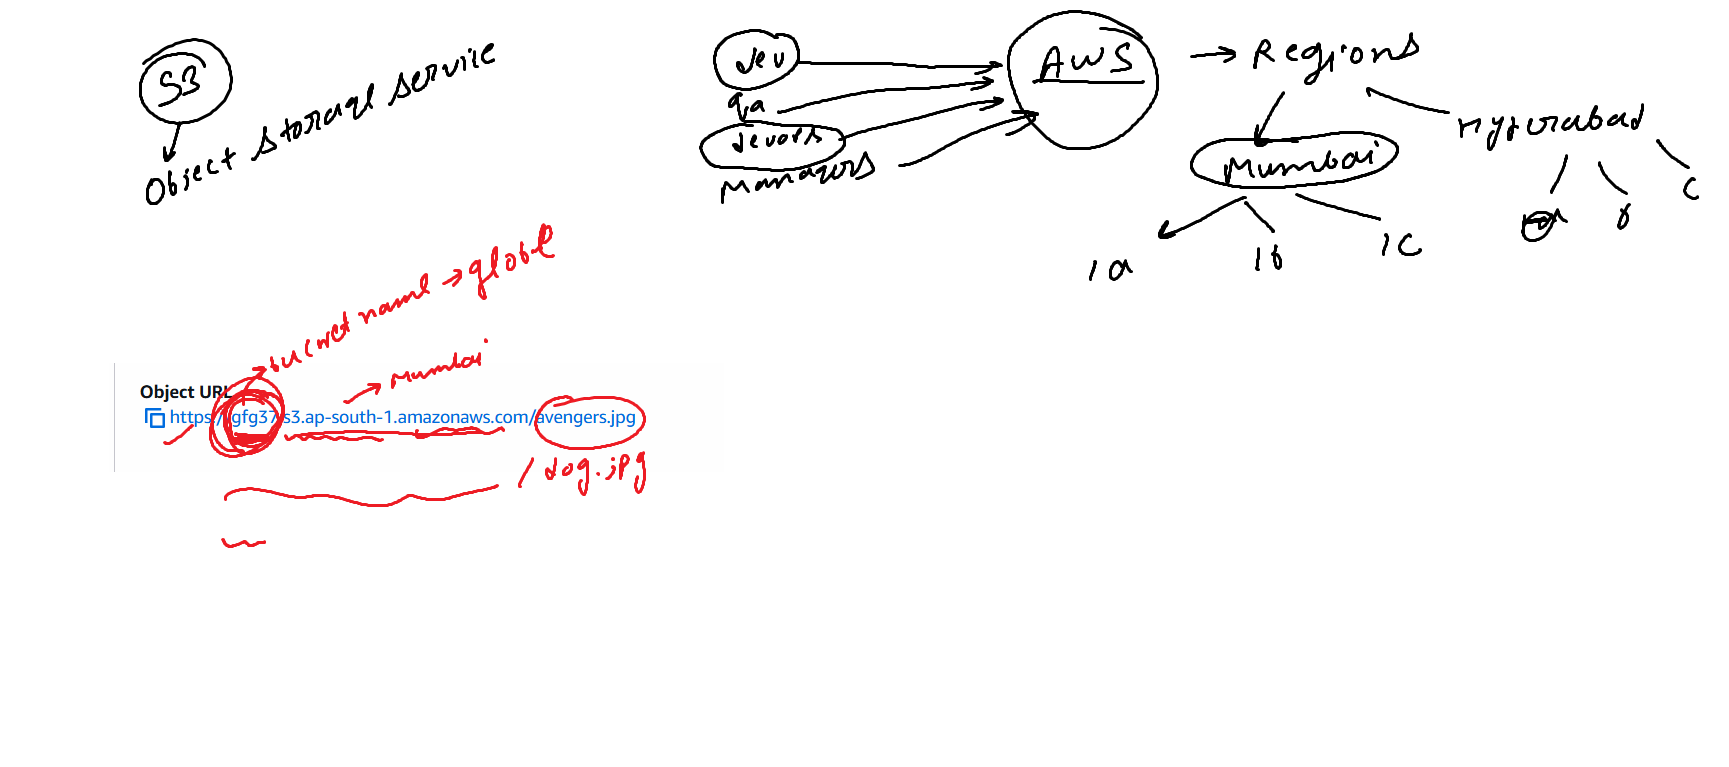 S3
Object storage service
dev
qa
devops
Managers
AWS
Regions
Mumbai
Hyderabad
1a
1b
1c
a
b
c
bucket name → globl
Mumbai
Object URL
https://gfg37.s3.ap-south-1.amazonaws.com/avengers.jpg
/dog.jpg